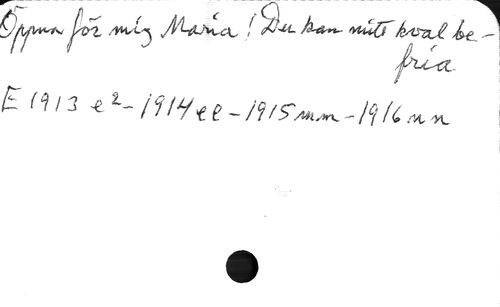 Öppna för mig Maria! Du kan mitt kval be-
fria
E 1913 e2 - 1914 ee - 1915 mm - 1916 nn